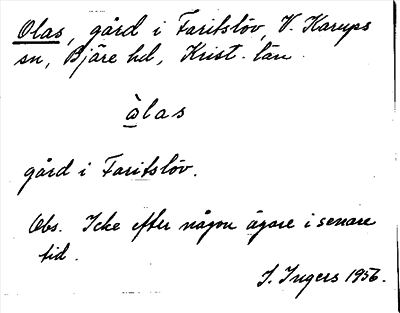 Olas, gård i Faritslöv, V. Karups
sn, Bjäre hd, Krist. län.
àlas
gård i Faritslöv.
Obs. Icke efter någon ägare i senare
tid.
I. Ingers 1956.